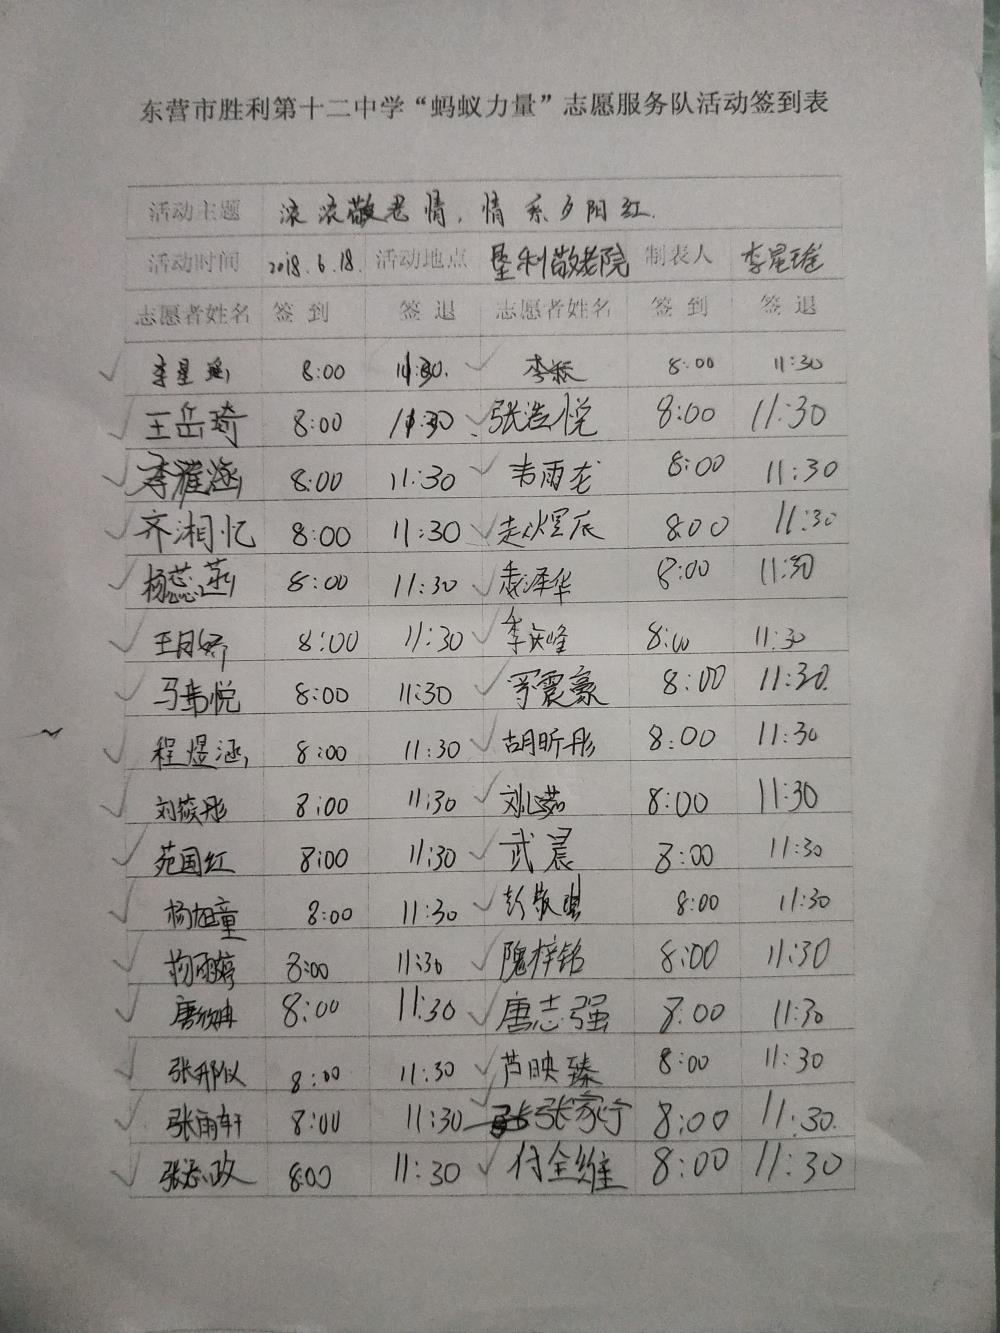 东营市胜利第十二中学“蚂蚁力量”志愿服务队活动签到表
活动主题 浓浓敬老情,情系夕阳红.
活动时间 2018.6.18. 活动地点 垦利敬老院 制表人 李星瑶
志愿者姓名 签到 签退 志愿者姓名 签到 签退
李星瑶 8:00 11:30. 8:00 11:30
王岳琦 8:00 11:30 张浩悦 8:00 11:30
李濯涵 8:00 11:30 韦雨龙 8:00 11:30
齐湘忆 8:00 11:30 赵煜辰 8:00 11:30
杨蕊菡 8:00 11:30 袁泽华 8:00 11:30
王月娇 8:00 11:30 李庆峰 8:00 11:30
马韦悦 8:00 11:30 罗震豪 8:00 11:30.
程煜涵 8:00 11:30 胡昕彤 8:00 11:30
刘筱彤 8:00 11:30 8:00 11:30
苑国红 8:00 11:30 武晨 8:00 11:30
杨旭童 8:00 11:30 彭敬琪 8:00 11:30
杨雨婷 8:00 11:30 隗梓铭 8:00 11:30
唐欣冉 8:00 11:30 唐志强 8:00 11:30
8:00 11:30 芦映臻 8:00 11:30
张雨轩 8:00 11:30 张家宁 8:00 11:30.
张志政 8:00 11:30 付全维 8:00 11:30